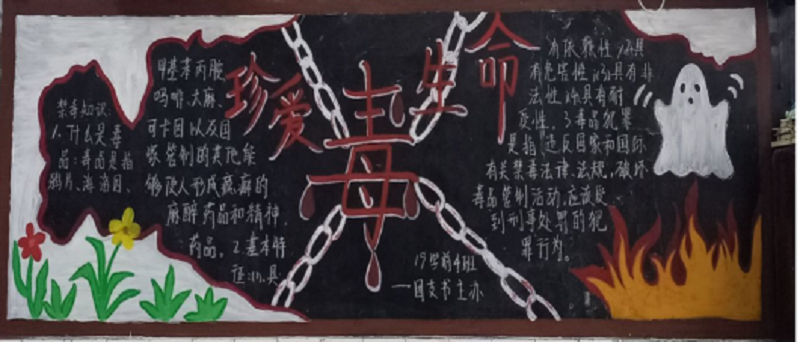 珍爱生命
毒
禁毒知识:
1.什么是毒
品:毒品是指
鸦片、海洛因、
甲基苯丙胺、
吗啡、大麻、
可卡因以及国
家管制的其他能
够使人形成瘾癖的
麻醉药品和精神
药品。2.基本特
征:(1)具
有依赖性(2)具
有危害性(3)具有非
法性(4)具有耐
受性。3毒品犯罪
是指违反国家和国际
有关禁毒法律、法规,破坏
毒品管制活动,应该受
到刑事处罚的犯
罪行为。
19学前4班
团支书主办